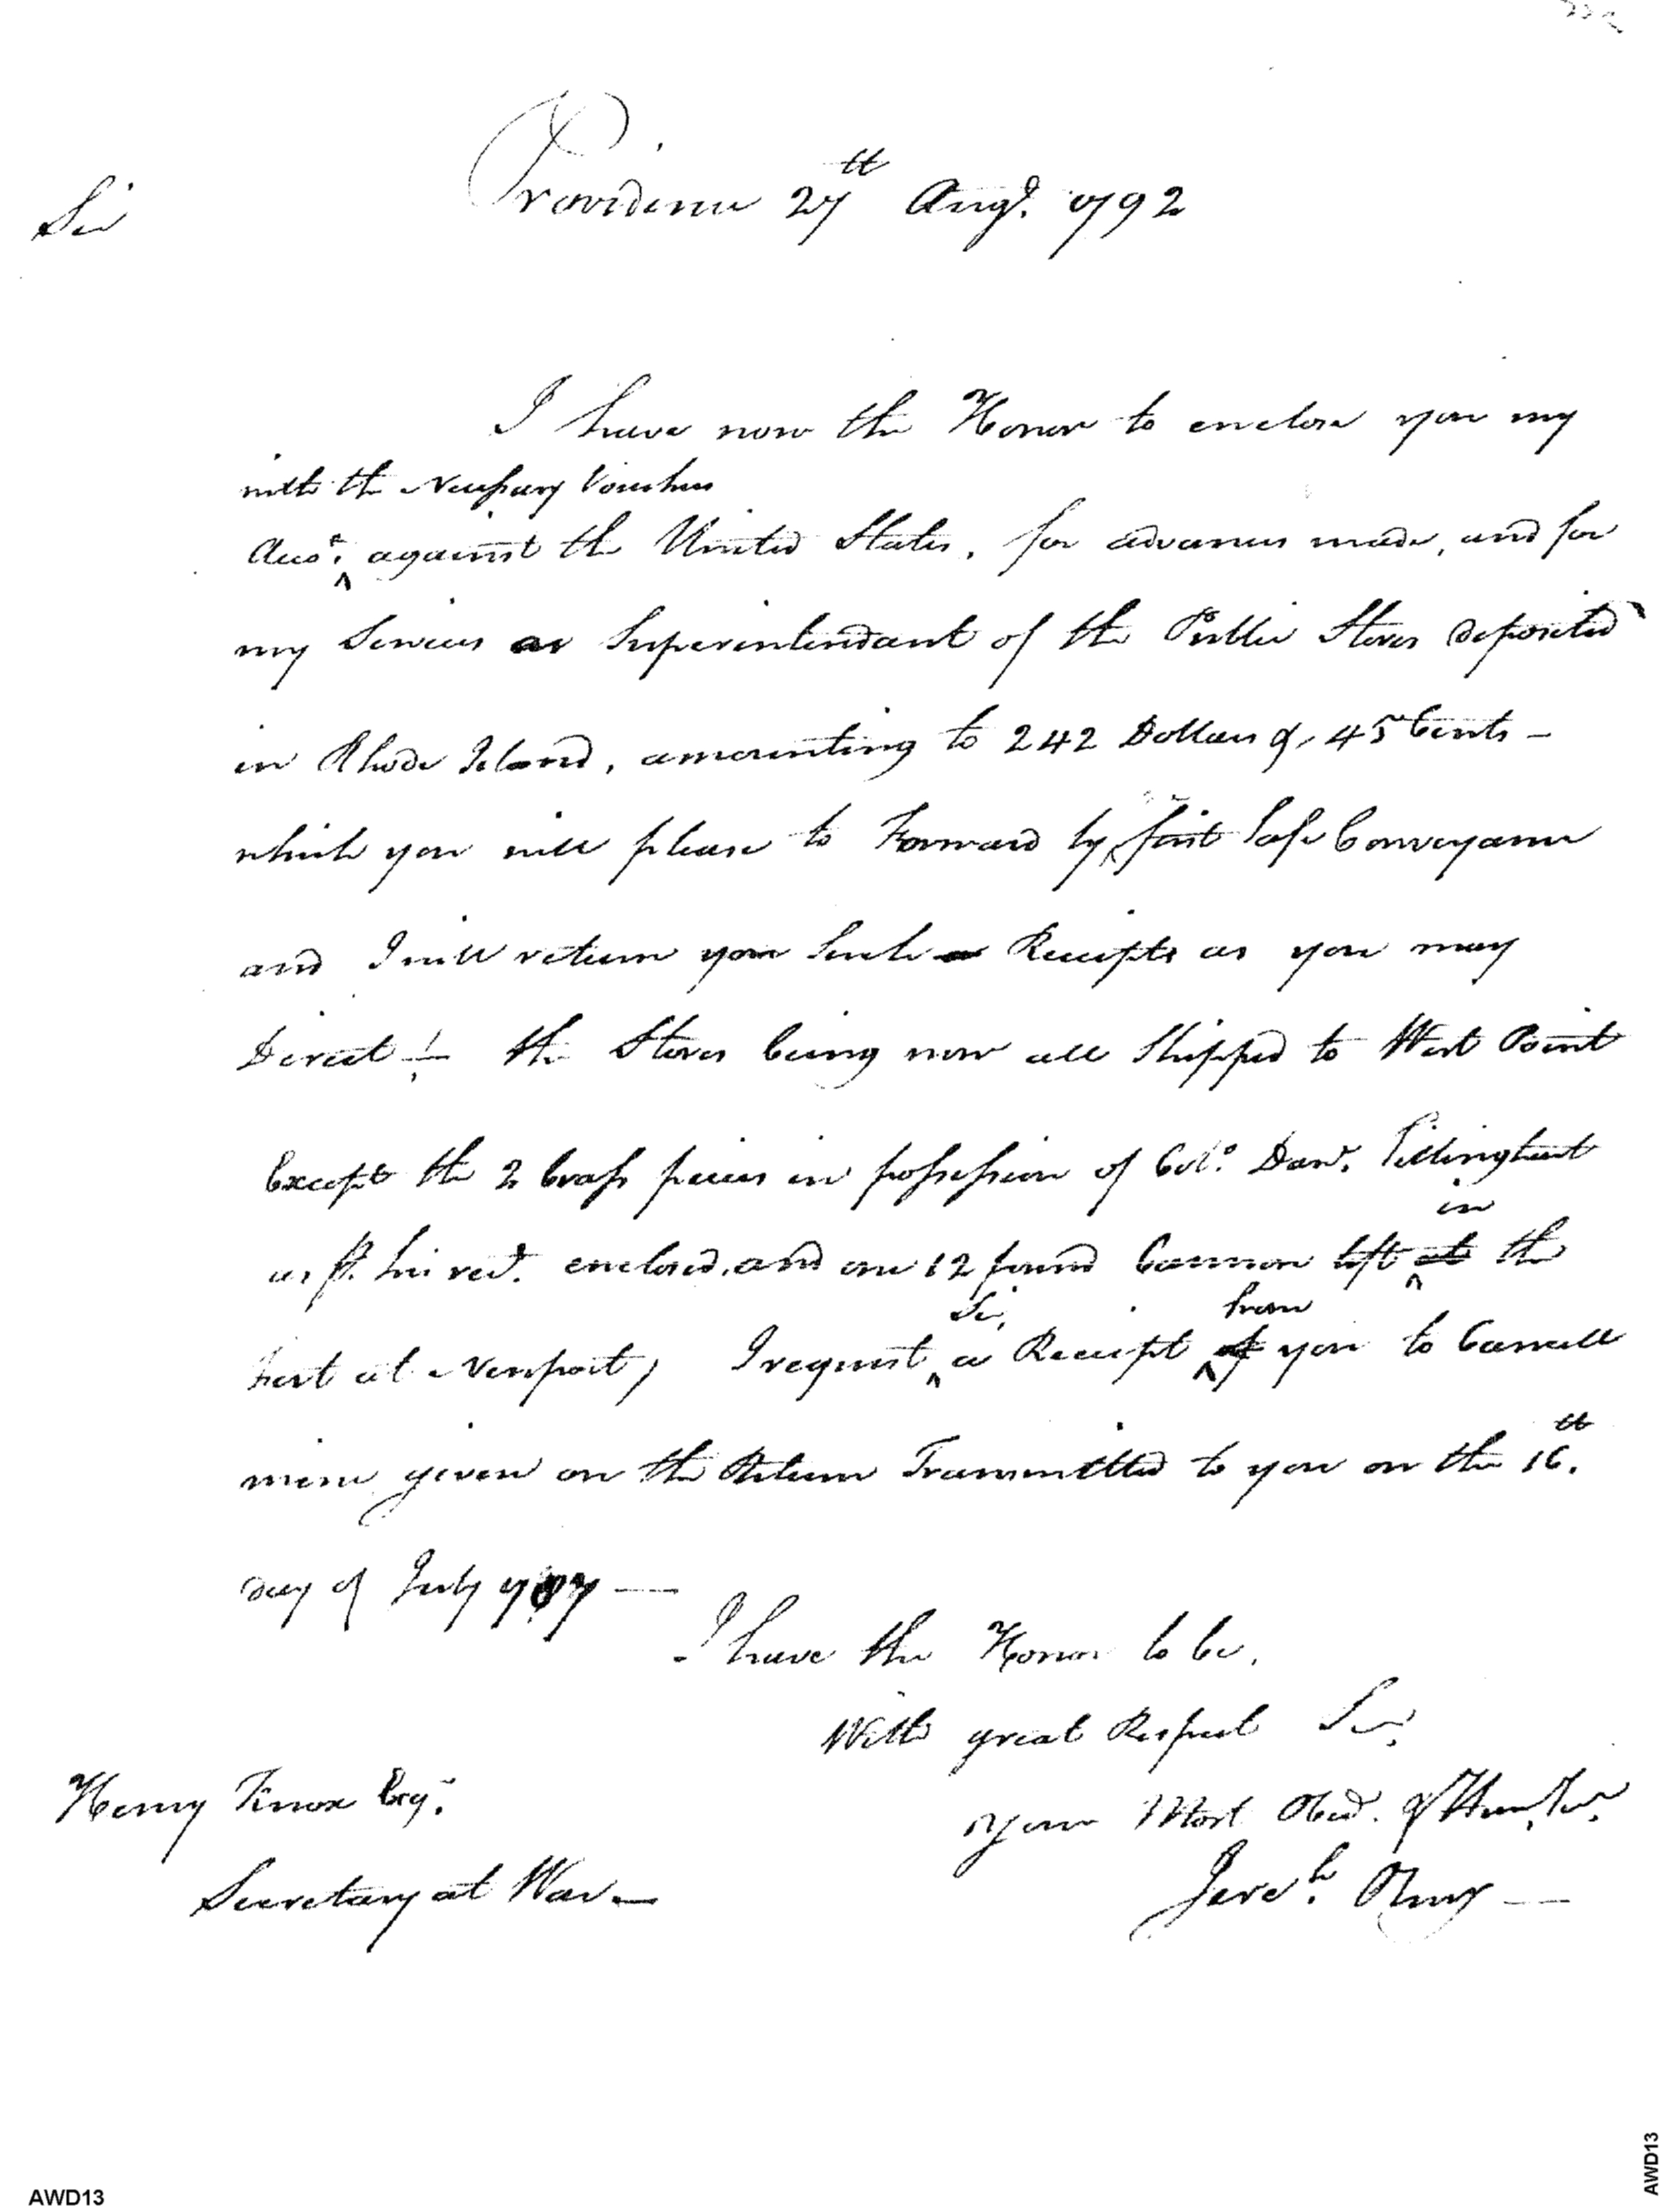 Providence 27th Augt. 1792
Sir
I have now the Honor to enclose you my
with the Necessary Vouchers
Acct. against the United States, for advances made, and for
my Services as Superintendant of the Public Stores deposited
in Rhode Island, amounting to 242 Dollars & 45 Cents -
which you will please to Forward by first Safe Conveyance
and I will return you Such Receipts as you may
Direct - the Stores being now all Shipped to West Point
Except the 2 brass pieces in possession of Colo. Danl. Tillinghast
in
as pr. his rect. enclosed, and one 12 pound Cannon left at the
Sir, from
Fort at Newport, I request a Receipt of you to Cancell
mine given on the Return Transmitted to you on the 16th.
day of July 1787 —
I have the Honor to be,
With great Respect Sir,
Your Most Obed. & Hum. Ser.
Jereh. Olney —
Henry Knox Esqr.
Secretary at War —
AWD13
AWD13